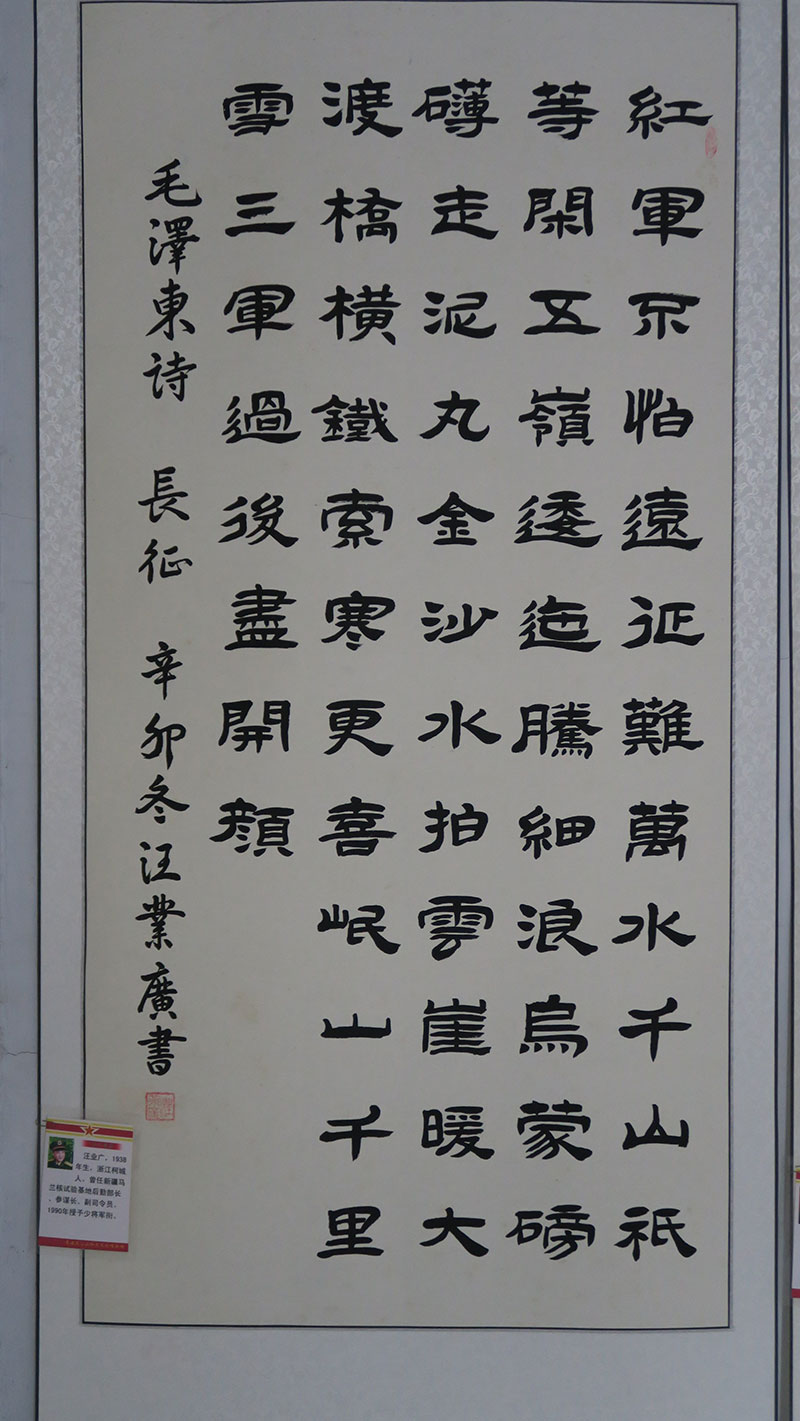 紅軍不怕遠征難萬水千山祇
等閑五嶺逶迤騰細浪烏蒙磅
礴走泥丸金沙水拍雲崖暖大
渡橋橫鐵索寒更喜岷山千里
雪三軍過後盡開顏
毛澤東詩 長征 辛卯冬汪業廣書
汪业广，1938
年生，浙江柯城
人，曾任新疆马
兰核试验基地后勤部长
、参谋长、副司令员，
1990年授予少将军衔。